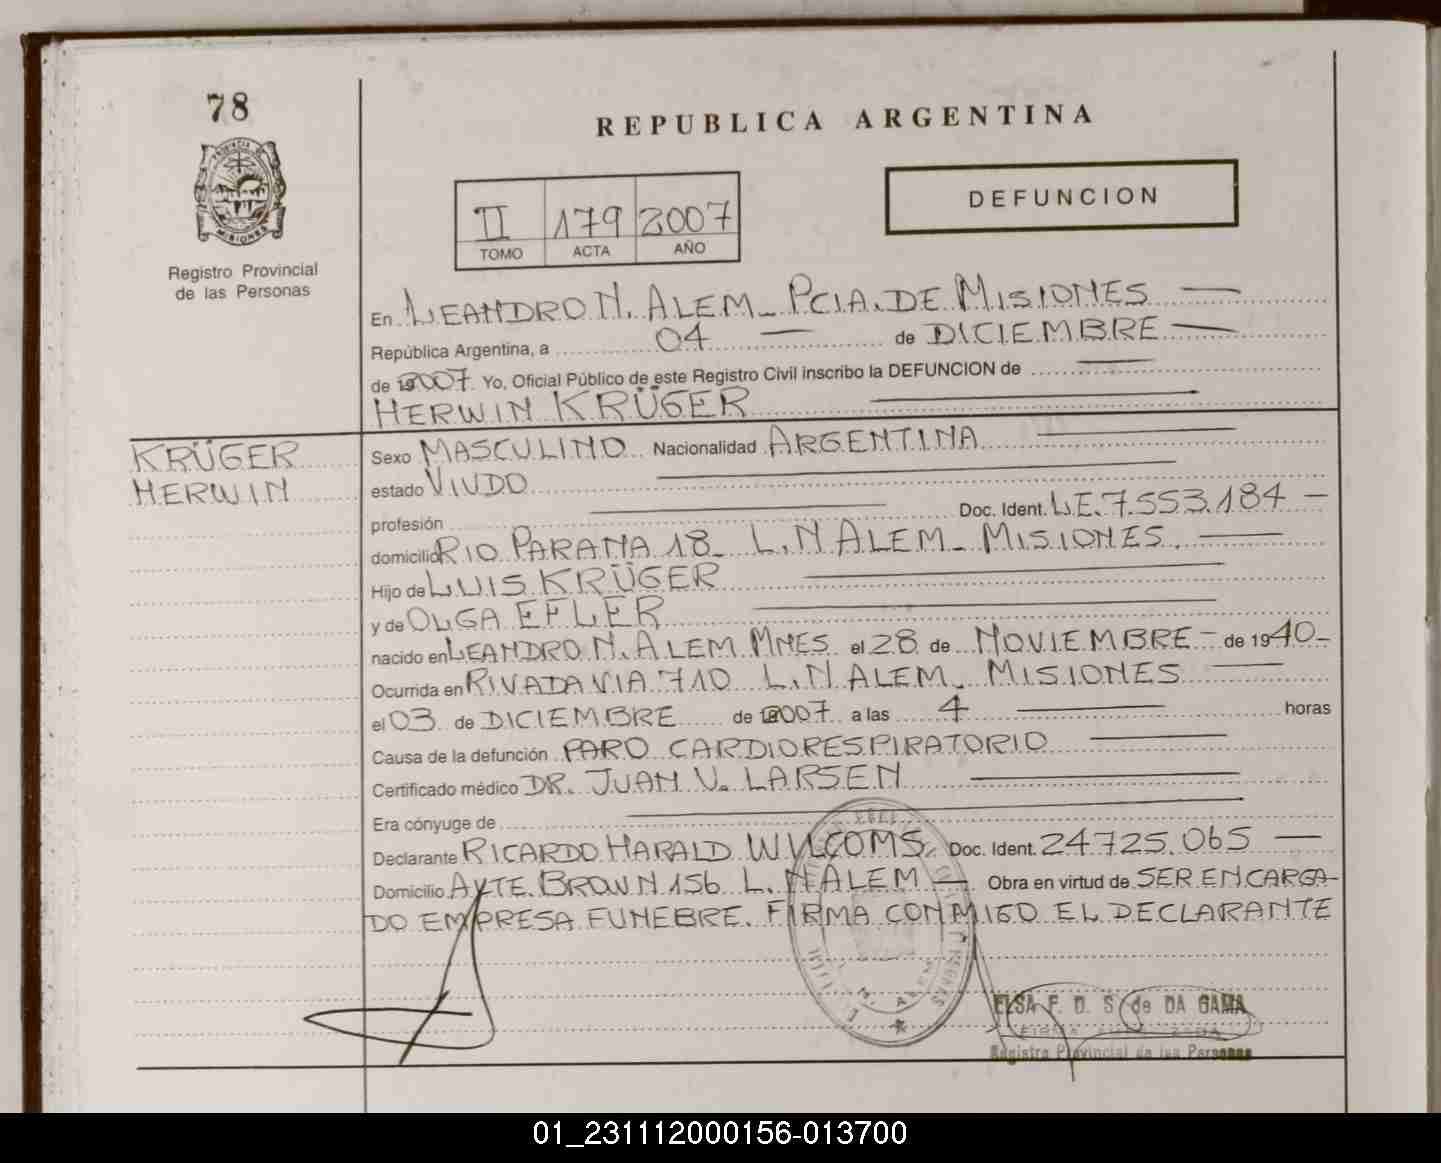 78
REPUBLICA ARGENTINA
PROVINCIA DE
MISIONES
Registro Provincial
de las Personas
II 179 2007
TOMO ACTA AÑO
DEFUNCION
En LEANDRO N. ALEM - PCIA. DE MISIONES —
República Argentina, a 04 — de DICIEMBRE —
de 2007 Yo, Oficial Público de este Registro Civil inscribo la DEFUNCION de —
HERWIN KRÜGER —
KRÜGER
HERWIN
Sexo MASCULINO Nacionalidad ARGENTINA —
estado VIUDO —
profesión — Doc. Ident. L.E. 7.553.184 —
domicilio RIO PARANA 18 - L. N ALEM - MISIONES. —
Hijo de LUIS KRÜGER —
y de OLGA EFLER —
nacido en LEANDRO N. ALEM MNES el 28 de NOVIEMBRE - de 1940 -
Ocurrida en RIVADAVIA 710 L. N ALEM - MISIONES —
el 03 de DICIEMBRE de 2007 a las 4 — horas
Causa de la defunción PARO CARDIORESPIRATORIO —
Certificado médico DR. JUAN V. LARSEN —
Era cónyuge de —
Declarante RICARDO HARALD WILCOMS. Doc. Ident. 24.725.065 —
Domicilio AVTE. BROWN 156 L. N ALEM — Obra en virtud de SER ENCARGA-
DO EMPRESA FUNEBRE. FIRMA CONMIGO EL DECLARANTE
N. ALEM
ELSA F. D. S. de DA GAMA
FIRMA
Registro Provincial de las Personas
01_231112000156-013700